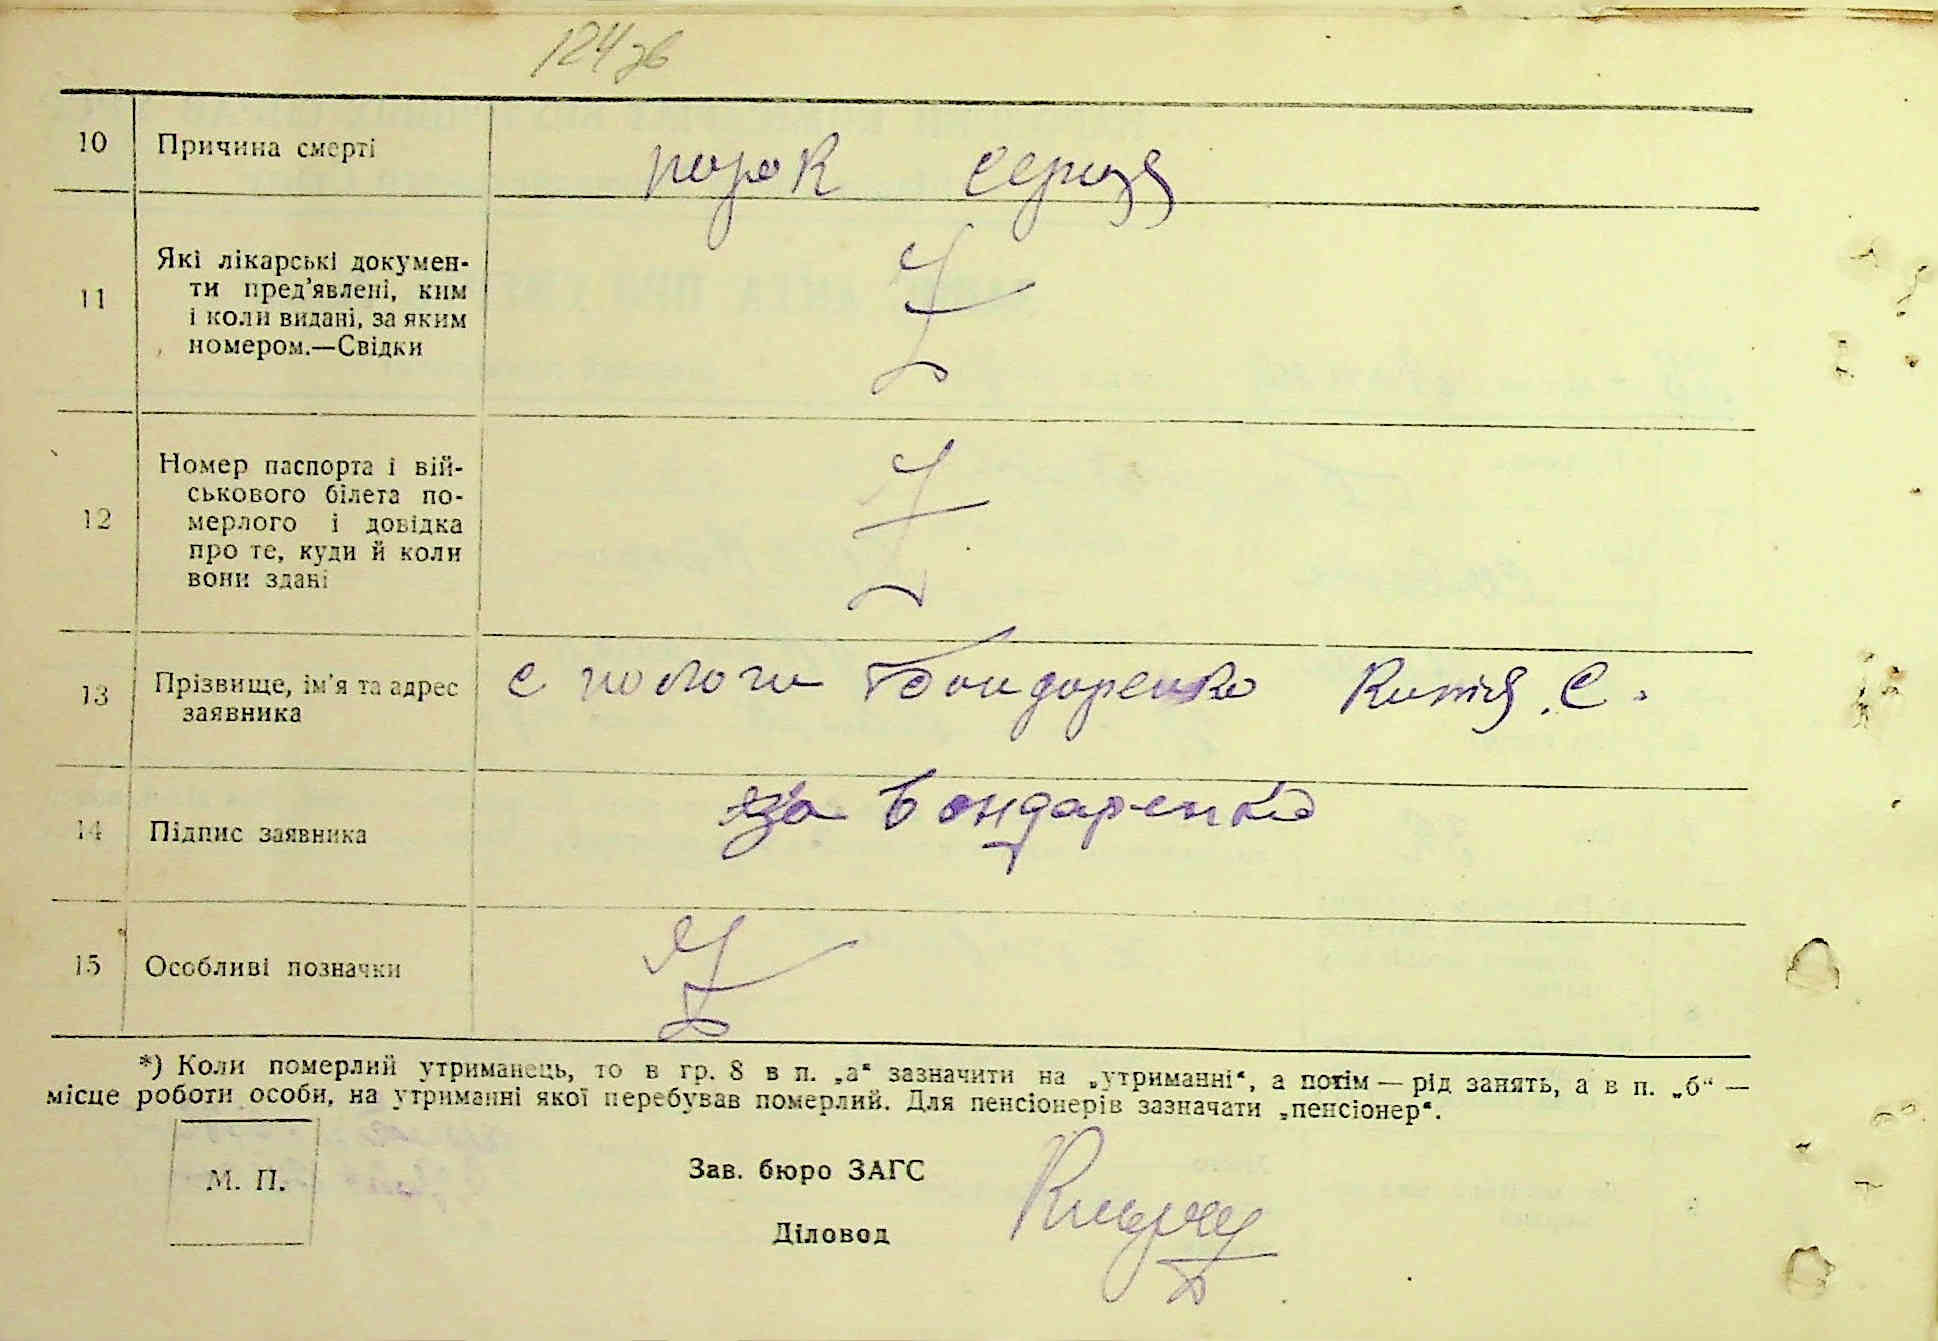 124 зв
10 Причина смерті порок серця
11 Які лікарські докумен-
ти пред'явлені, ким
і коли видані, за яким
номером.—Свідки
12 Номер паспорта і вій-
ськового білета по-
мерлого і довідка
про те, куди й коли
вони здані
13 Прізвище, ім'я та адрес с Пологи Бондаренко Катя. С.
заявника
14 Підпис заявника за Бондаренко
15 Особливі позначки
*) Коли померлий утриманець, то в гр. 8 в п. „а“ зазначити на „утриманні“, а потім — рід занять, а в п. „б“ —
місце роботи особи, на утриманні якої перебував померлий. Для пенсіонерів зазначати „пенсіонер“.
М. П.
Зав. бюро ЗАГС
Діловод